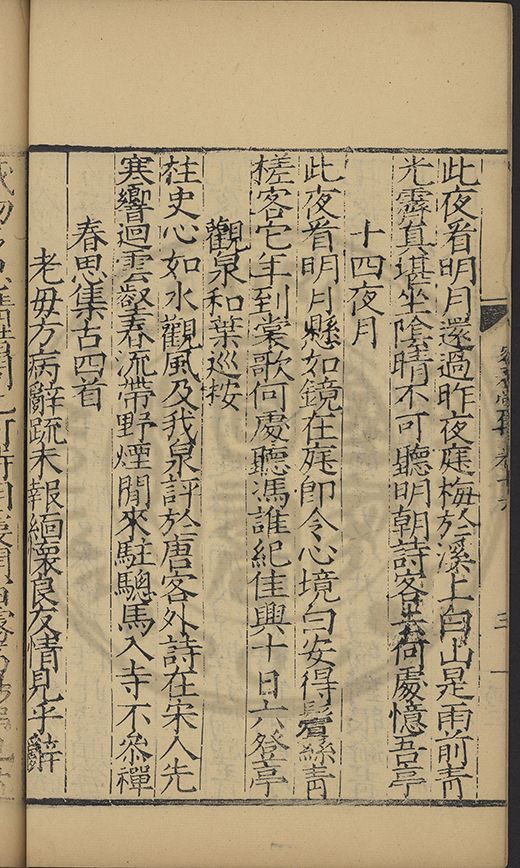 此夜看明月還過昨夜庭梅於溪上白山是雨前青
光霽真堪坐陰晴不可聽明朝詩客去何處憶吾亭
十四夜月
此夜看明月懸如鏡在庭即令心境白安得鬢絲青
槎客它年到裳歌何處聽馮誰紀佳興十日六登亭
觀泉和葉巡按
柱史心如水觀風及我泉評於唐客外詩在宋人先
寒響迴雲壑春流帶野煙閒來駐驄馬入寺不參禪
春思集古四首
老母方病辭疏未報緬懷良友情見乎辭